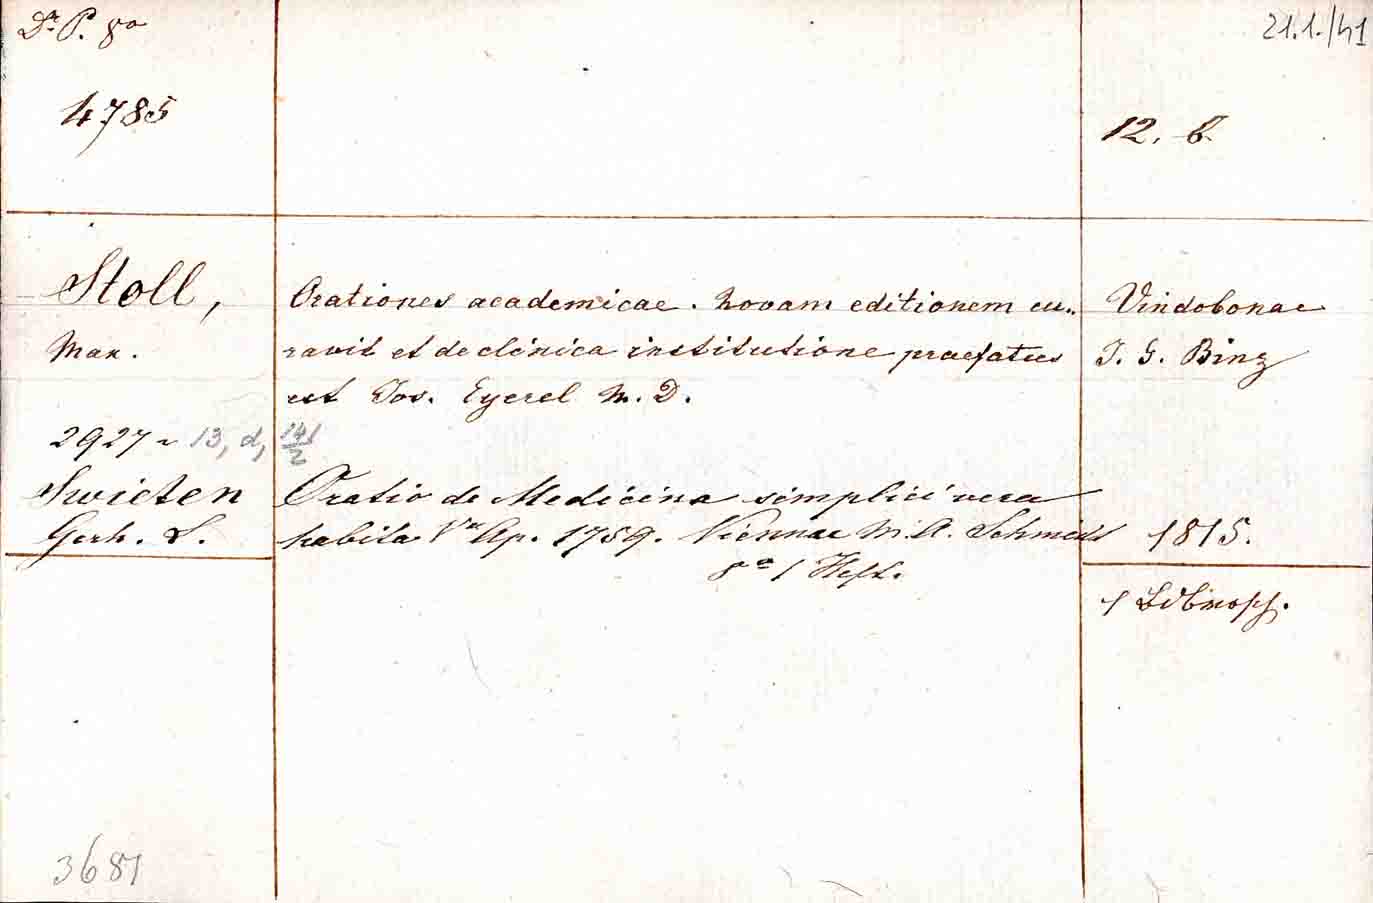 Dr. P. 8o
21.1./41
4785
12. b.
Stoll,
Max.
Orationes academicae. Novam editionem cu-
ravit et de clinica institutione praefatus
est Jos. Eyerel M. D.
Vindobonae
J. G. Binz
2927 ~ 13, d, 141/2
Swieten
Gerh. L.
Oratio de Medicina simplici vera
habita Va Ap. 1759. Viennae M. A. Schmidt
8o 1 Heft.
1815.
1
3681